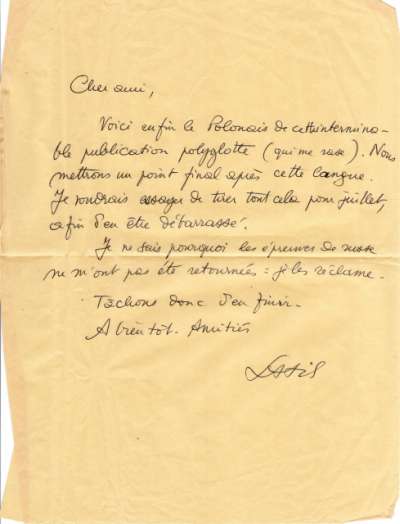 Cher ami,
Voici enfin le Polonais de cette intermina-
ble publication polyglotte (qui me rase). Nous
mettrons un point final après cette langue.
Je voudrais essayer de tirer tout cela pour juillet,
afin d'en être débarrassé.
Je ne sais pourquoi les épreuves de russe
ne m'ont pas été retournées : je les réclame.
Tachons donc d'en finir.
A bientôt. Amitiés
Latis